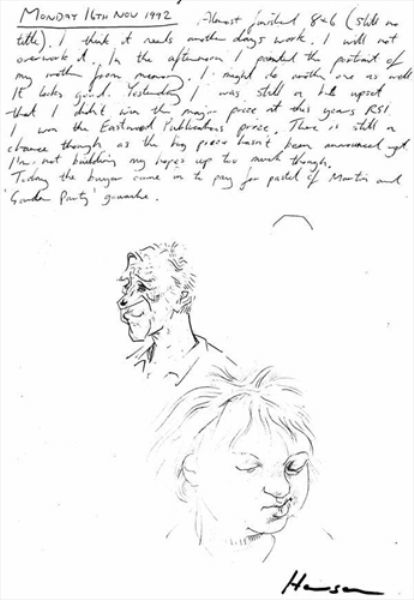 MONDAY 16TH NOV 1992 Almost finished 8&6 (still no
title). I think it needs another days work. I will not
overwork it. In the afternoon I painted the portrait of
my mother from memory. I might do another one as well
It looks good. Yesterday I was still a bit upset
that I didn't win the major prize at this years RSI.
I won the Eastwood Publications prize. There is still a
chance though as the big prize hasn't been announced yet
I'm not building my hopes up too much though.
Today the buyer came in to pay for pastel of Martin and
'Garden Party' gouache.
Hansen